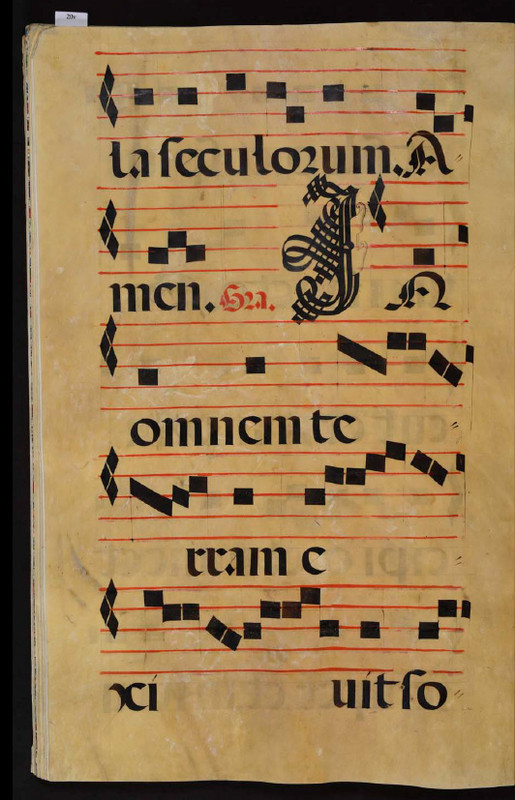 20v
la seculorum. A
men. Gra. I N
omnem te
rram e
xi uit so